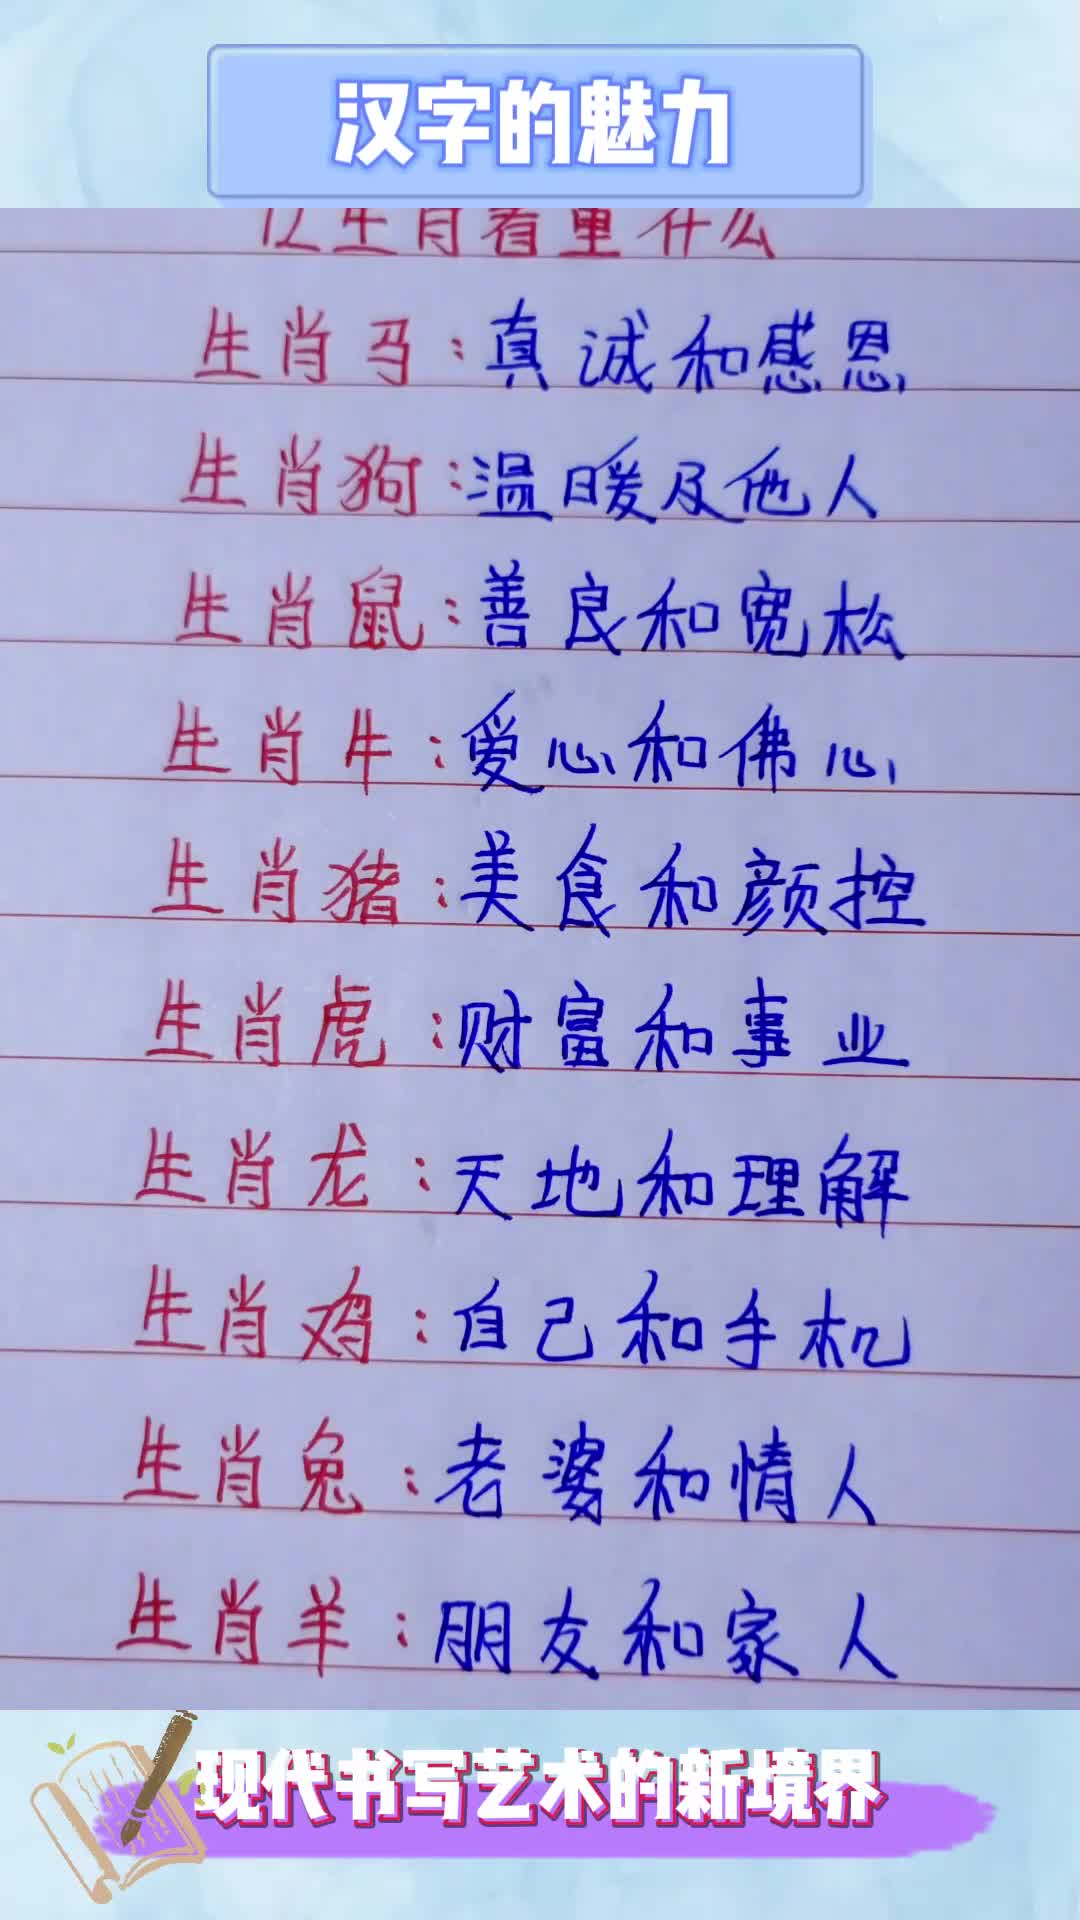 汉字的魅力
生肖看重什么
生肖马：真诚和感恩
生肖狗：温暖及他人
生肖鼠：善良和宽松
生肖牛：爱心和佛心
生肖猪：美食和颜控
生肖虎：财富和事业
生肖龙：天地和理解
生肖鸡：自己和手机
生肖兔：老婆和情人
生肖羊：朋友和家人
现代书写艺术的新境界